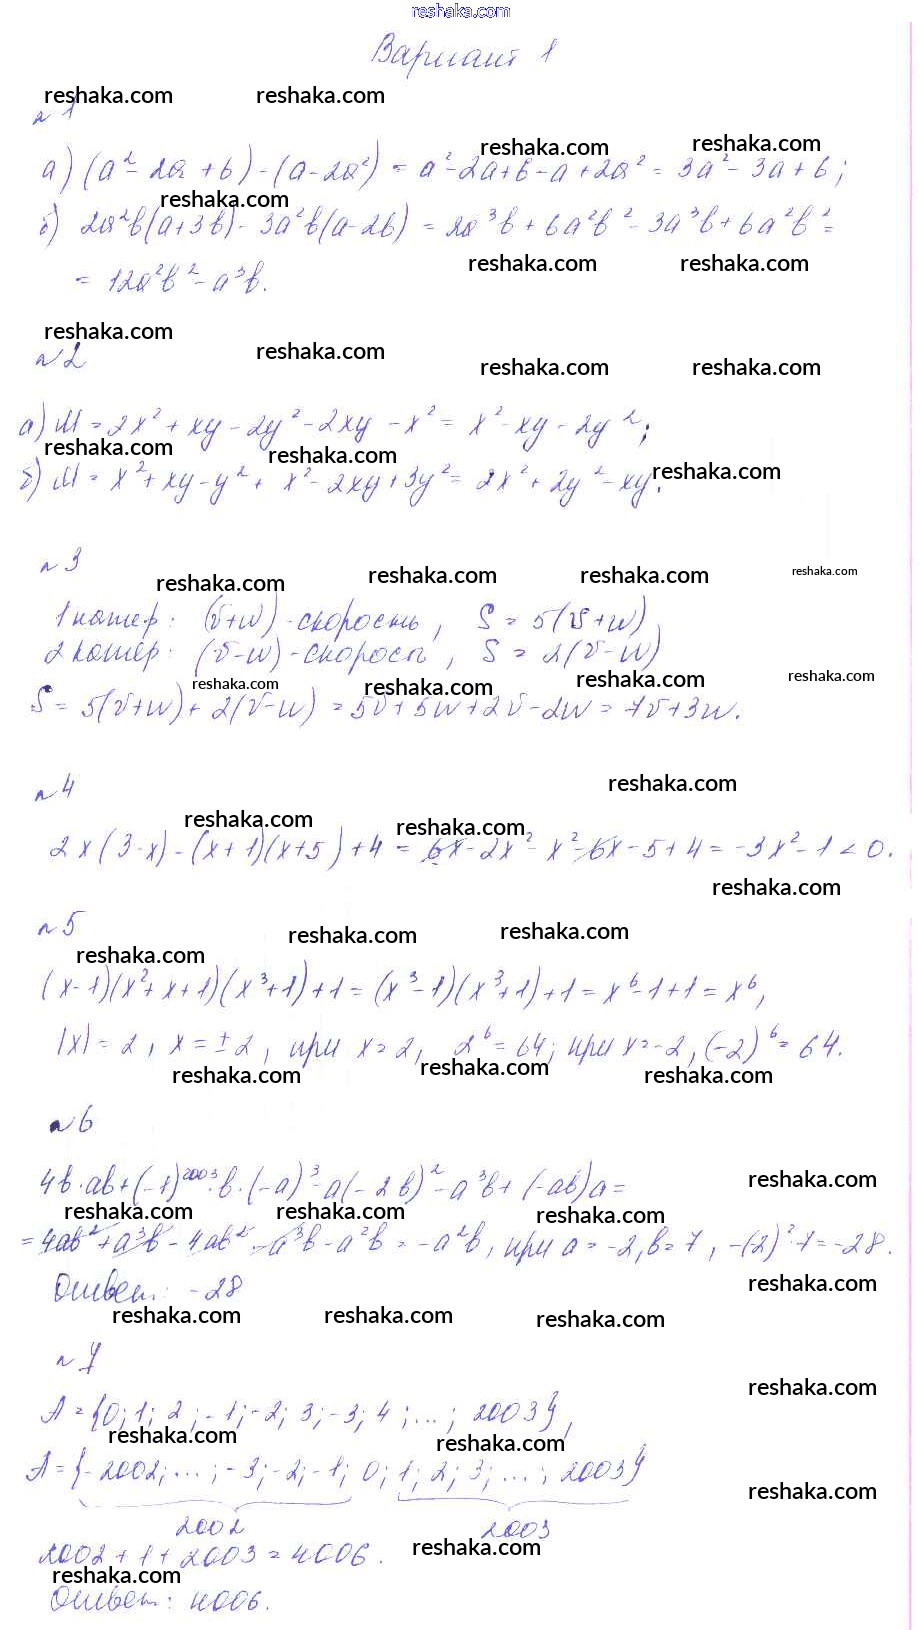 reshaka.com
Вариант 1
reshaka.com reshaka.com
№1
reshaka.com reshaka.com
а) (a² - 2a + 6) - (a - 2a²) = a² - 2a + 6 - a + 2a² = 3a² - 3a + 6;
reshaka.com
б) 2a²b(a+3b) - 3a²b(a-2b) = 2a³b + 6a²b² - 3a³b + 6a²b² =
reshaka.com reshaka.com
= 12a²b² - a³b.
reshaka.com
№2 reshaka.com
reshaka.com reshaka.com
а) М = 2x² + xy - 2y² - 2xy - x² = x² - xy - 2y²;
reshaka.com reshaka.com reshaka.com
б) М = x² + xy - y² + x² - 2xy + 3y² = 2x² + 2y² - xy.
№3
reshaka.com reshaka.com reshaka.com reshaka.com
1 катер: (v+w) - скорость, S = 5(v+w)
2 катер: (v-w) - скорость, S = 2(v-w)
reshaka.com reshaka.com reshaka.com reshaka.com
S = 5(v+w) + 2(v-w) = 5v + 5w + 2v - 2w = 7v + 3w.
№4 reshaka.com
reshaka.com reshaka.com
2x(3-x) - (x+1)(x+5) + 4 = 6x - 2x² - x² - 6x - 5 + 4 = -3x² - 1 < 0.
reshaka.com
№5 reshaka.com reshaka.com
reshaka.com
(x-1)(x²+x+1)(x³+1)+1 = (x³-1)(x³+1)+1 = x⁶-1+1 = x⁶,
|x| = 2, x = ±2, при x=2, 2⁶ = 64; при x=-2, (-2)⁶ = 64.
reshaka.com reshaka.com reshaka.com
№6
4b·ab+(-1)²⁰⁰³·b·(-a)³-a(-2b)²-a³b+(-ab)a= reshaka.com
reshaka.com reshaka.com reshaka.com
= 4ab² + a³b - 4ab² - a³b - a²b = -a²b, при a=-2, b=7, -(2)²·7 = -28.
Ответ: -28 reshaka.com
reshaka.com reshaka.com reshaka.com
№7
reshaka.com
A = {0; 1; 2; -1; -2; 3; -3; 4; ...; 2003},
reshaka.com reshaka.com
A = {-2002; ...; -3; -2; -1; 0; 1; 2; 3; ...; 2003}
reshaka.com
2002 2003
2002 + 1 + 2003 = 4006. reshaka.com
reshaka.com
Ответ: 4006.